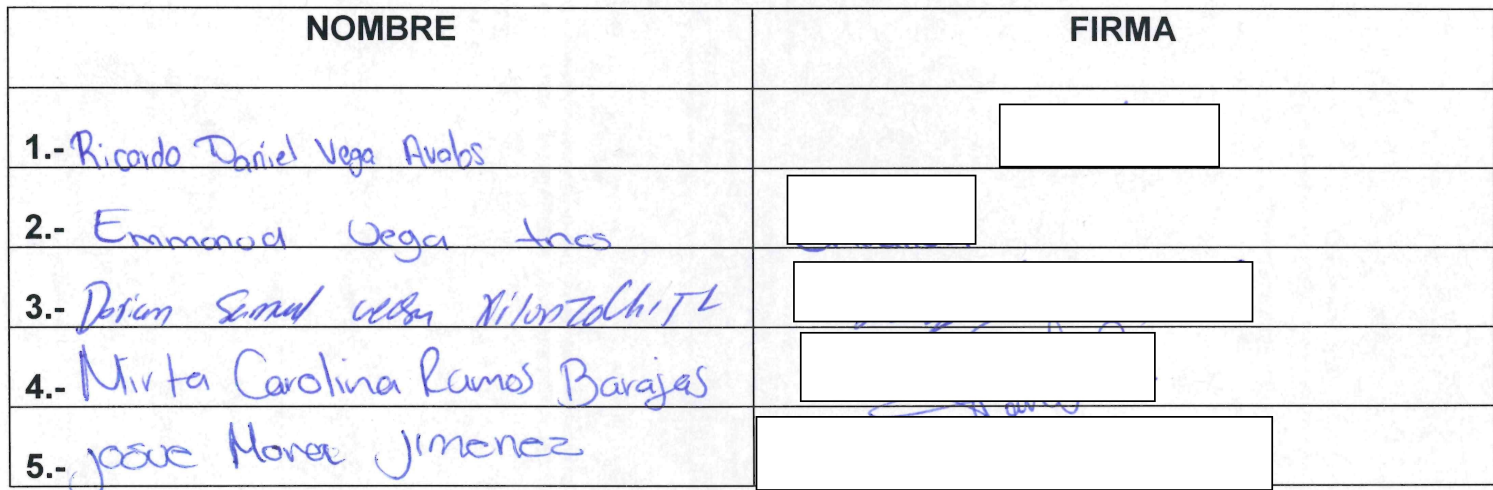 NOMBRE FIRMA
1.- Ricardo Daniel Vega Avalos
2.- Emmanuel Vega
3.- Dorian Samuel
4.- Mirta Carolina Ramos Barajas
5.- josue Jimenez